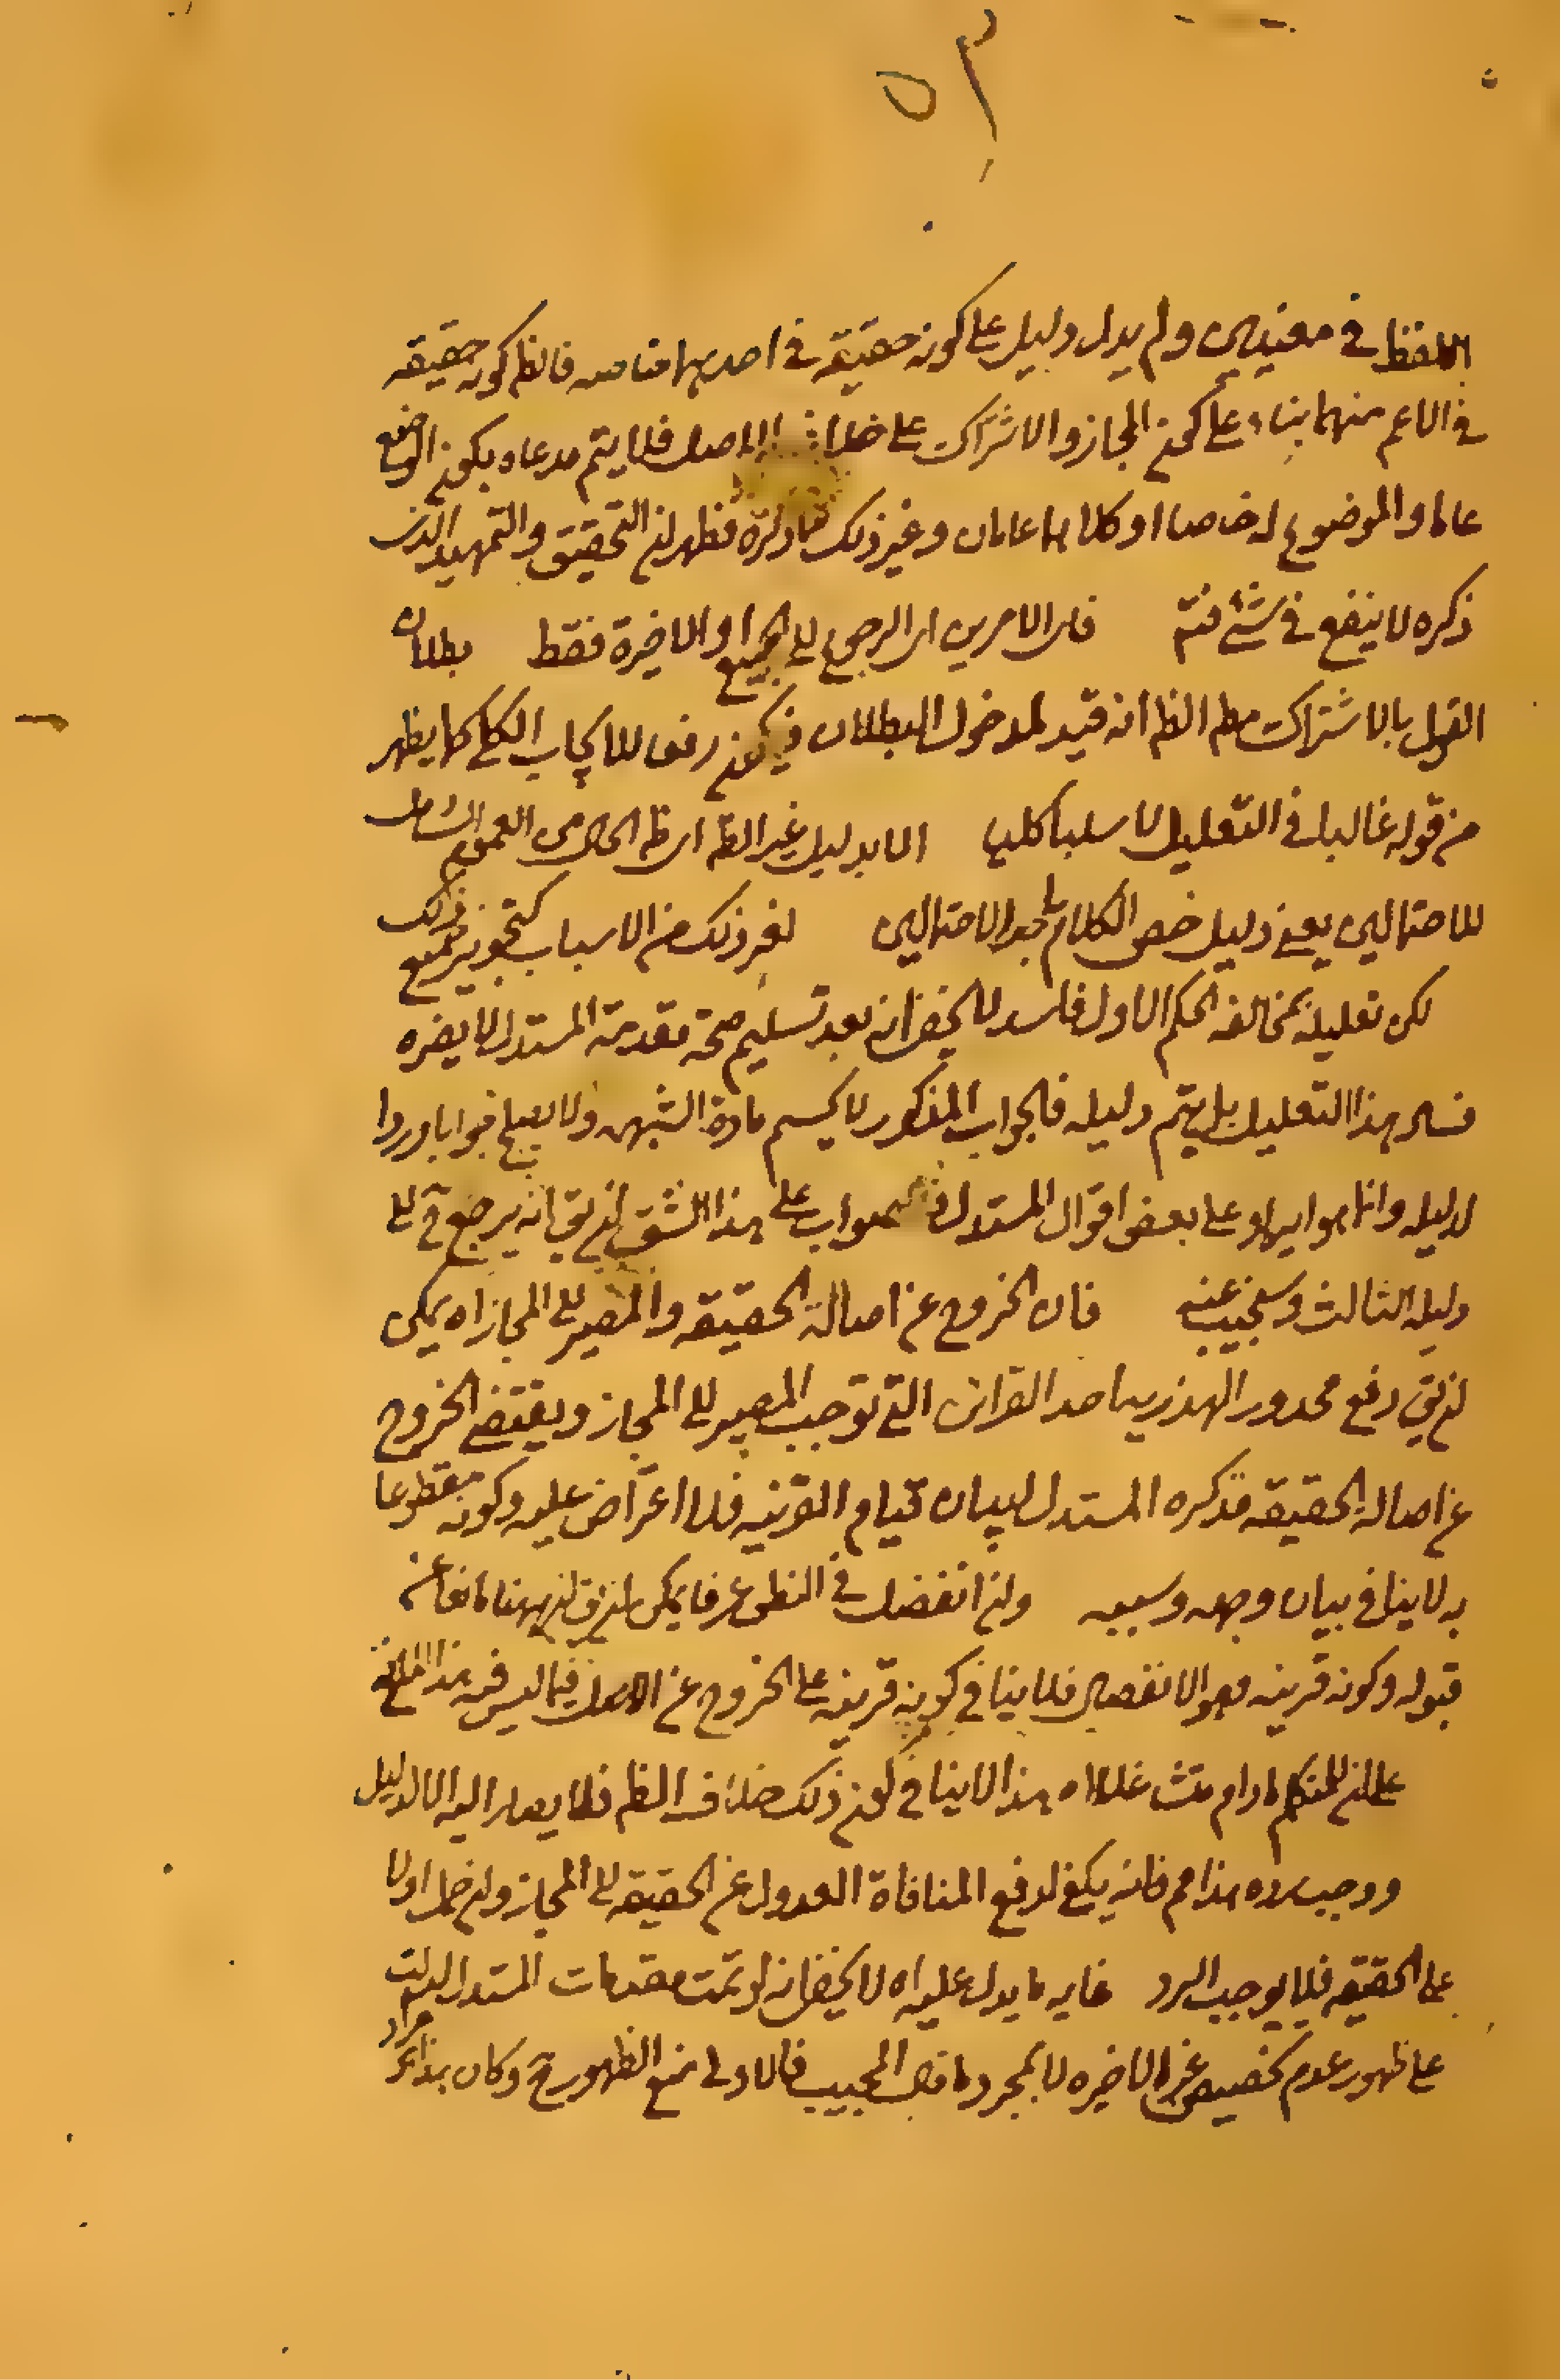 ٥٣
اللفظ في معنيين ولم يدل دليل على كونه حقيقة في احدهما خاصه فالظ كونه حقيقه
في الاعم منهما بناء على كون المجاز والاشتراك على خلاف الاصل فلا يتم مدعاه بكون الوضع
عاما والموضوع له خاصا او كلاهما عامان وغير ذلك مما ذكره فظهر ان التحقيق والتمهيد الذى
ذكره لا ينفع في شئ فتم فان الامرين اى الرجوع الى الجميع او الاخيرة فقط بطلان
القول بالاشتراك مطم الظم انه قيد لمدخول البطلان فيكون رفعا للايجاب الكلى كما يظهر
من قوله غالبا في التعليل لا سلبا كليا الا بدليل غير الظم اى ظم الحال من العموم الشامل
للاحتمالين يعنى دليل خص الكلام باحد الاحتمالين لغير ذلك من الاسباب كتجويز
لكن تعليله بمخالفه الحكم الاول فاسد لا يخفى انه بعد تسليم صحة مقدمة المستدل لا يضره
فساد هذا التعليل بل يتم دليله فالجواب المذكور لا يحسم مادة الشبهه ولا يصلح جوابا وردا
لدليله وانما هو ايراد على بعض اقوال المستدل فالصواب على هذا الشق ان يق انه يرجع ح الى
دليله الثالث وسنجيب عنه فان الخروج عن اصالة الحقيقه والمصير الى المجاز اه يمكن
ان يق دفع محذور الهذرية احد القراين التى توجب المصير الى المجاز ويقتضى الخروج
عن اصالة الحقيقه فذكره المستدل لبيان قيام القرينه فلا اعتراض عليه وكونه مقطوعا
به لا ينافي بيان وجهه وسببه وان انفصل في النطق عرفا يمكن ان يق ان ههنا مانعا عن
قبوله وكونه قرينه وهو الانفصال فلا ينافي كونه قرينه على الخروج عن الاصل فيما ليس فيه هذا المانع
على ان للمتكلم ما دام متشاغلا اه هذا لا ينافي كون ذلك خلاف الظم فلا يصار اليه الا لدليل
ووجب رده هذا مم فانه يكفى لدفع المنافاة العدول عن الحقيقه الى المجاز وان حمل اولا
على الحقيقه فلا يوجب الرد غايه ما يدل عليه اه لا يخفى انه لو تمت مقدمات المستدل لدلت
على ظهور عدم تخصيص غير الاخيره لا بمجرد ما قال المجيب فالاولى منع الظهور ح وكان هذا مراد